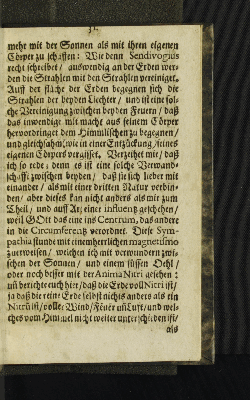 mehr mit der Sonnen als mit ihren eigenen
Cörper zu schaffen: Wie denn Sendivogius
recht schreibet / auswendig an der Erden wer-
den die Strahlen mit den Strahlen vereiniget.
Auff der fläche der Erden begegnen sich die
Strahlen der beyden Liechter / und ist eine sol-
che Vereinigung zwischen beyden Feuern / daß
das inwendige mit macht aus seinem Cörper
hervordringet dem Himmlischen zu begegnen /
und gleichsahm wie in einer Entzückung / seines
eigenen Cörpers vergisset. Verzeihet mir / daß
ich so rede; denn es ist eine solche Verwand-
schafft zwischen beyden / daß sie sich lieber mit
einander / als mit einer dritten Natur verbin-
den / aber dieses kan nicht anders als mit zum
Theil / und auff Art einer influentz geschehen /
weil GOtt das eine ins Centrum, das andere
in die Circumferentz verordnet. Diese Sym-
pathia stunde mit einem herrlichen magnetismo
zu erweisen / welchen ich mit verwundern zwi-
schen der Sonnen / und einem süssen Oehl /
oder noch besser mit der Anima Nitri gesehen:
un berichte euch hier / daß die Erde voll Nitri ist /
ja daß die reine Erde selbst nichts anders als ein
Nitrū ist / voller Wind / Feuer uñ Luft / und wel-
ches vom Himmel nicht weiter unterschieden ist /
als